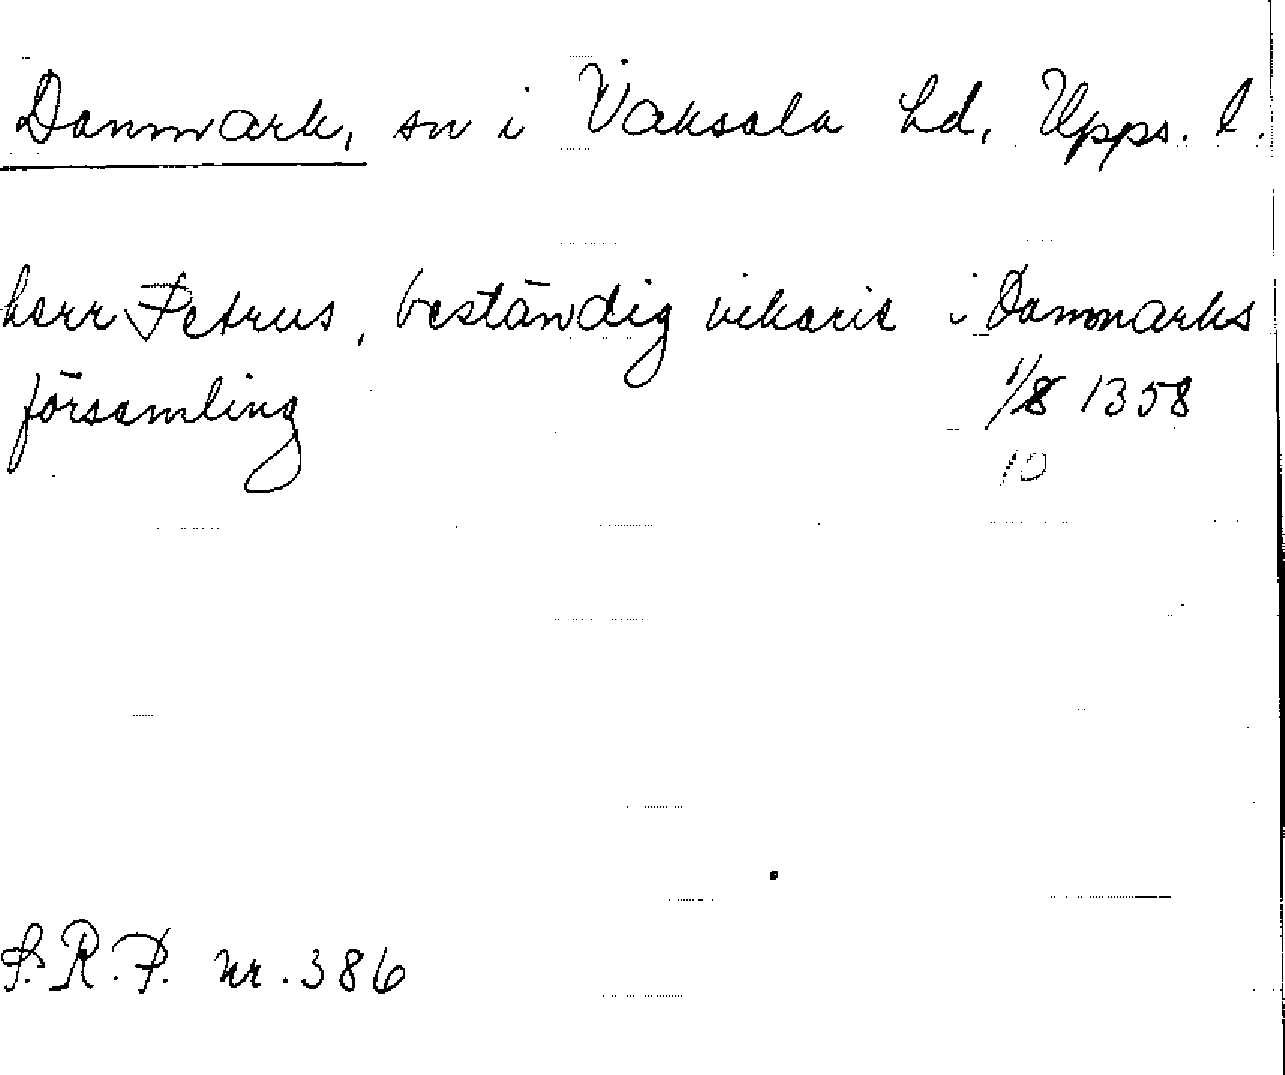 Danmark, sn i Vaksala hd, Upps. l.
herr Petrus, beständig vikarie i Danmarks
församling 1/8 1358
10
S.R.P. nr. 386